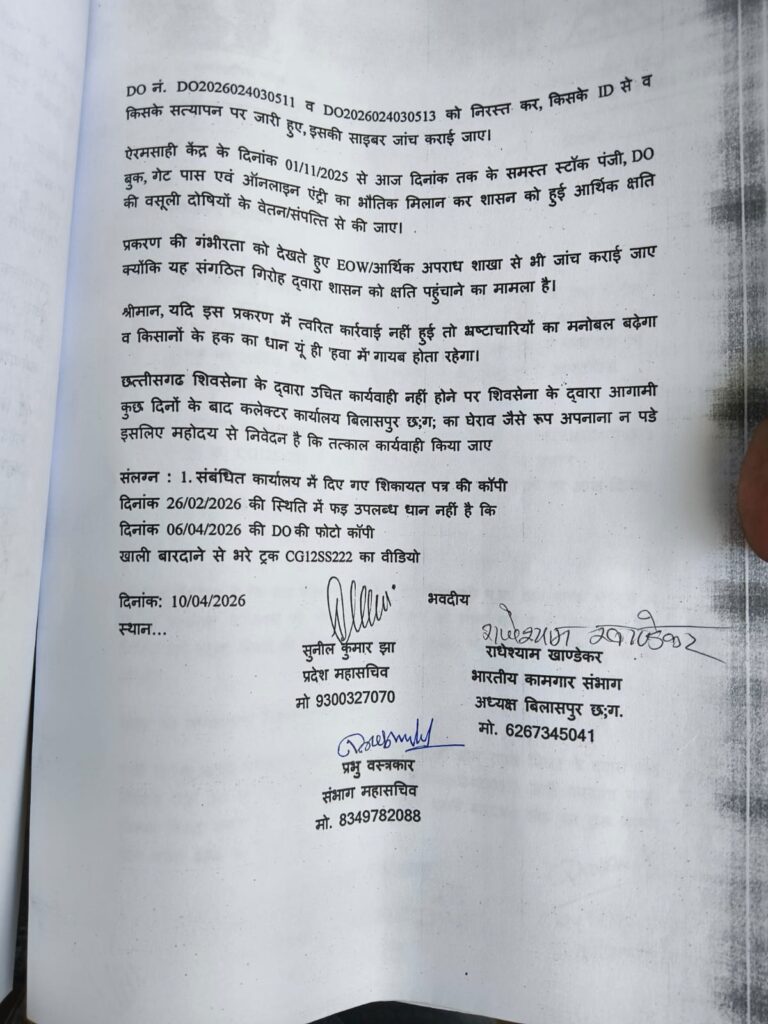 DO नं. DO2026024030511 व DO2026024030513 को निरस्त कर, किसके ID से व
किसके सत्यापन पर जारी हुए, इसकी साइबर जांच कराई जाए।
ऐरमसाही केंद्र के दिनांक 01/11/2025 से आज दिनांक तक के समस्त स्टॉक पंजी, DO
बुक, गेट पास एवं ऑनलाइन एंट्री का भौतिक मिलान कर शासन को हुई आर्थिक क्षति
की वसूली दोषियों के वेतन/संपत्ति से की जाए।
प्रकरण की गंभीरता को देखते हुए EOW/आर्थिक अपराध शाखा से भी जांच कराई जाए
क्योंकि यह संगठित गिरोह द्वारा शासन को क्षति पहुंचाने का मामला है।
श्रीमान, यदि इस प्रकरण में त्वरित कार्रवाई नहीं हुई तो भ्रष्टाचारियों का मनोबल बढ़ेगा
व किसानों के हक का धान यूं ही 'हवा में' गायब होता रहेगा।
छत्तीसगढ शिवसेना के द्वारा उचित कार्यवाही नहीं होने पर शिवसेना के द्वारा आगामी
कुछ दिनों के बाद कलेक्टर कार्यालय बिलासपुर छ;ग; का घेराव जैसे रूप अपनाना न पडे
इसलिए महोदय से निवेदन है कि तत्काल कार्यवाही किया जाए
संलग्न : 1. संबंधित कार्यालय में दिए गए शिकायत पत्र की कॉपी
दिनांक 26/02/2026 की स्थिति में फड़ उपलब्ध धान नहीं है कि
दिनांक 06/04/2026 की DO की फोटो कॉपी
खाली बारदाने से भरे ट्रक CG12SS222 का वीडियो
दिनांक: 10/04/2026
भवदीय
स्थान...
राधेश्याम खाण्डेकर
सुनील कुमार झा
राधेश्याम खाण्डेकर
प्रदेश महासचिव
भारतीय कामगार संभाग
मो 9300327070
अध्यक्ष बिलासपुर छ;ग.
मो. 6267345041
प्रभु वस्त्रकार
संभाग महासचिव
मो. 8349782088